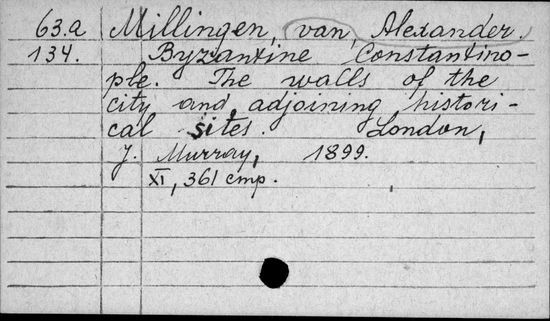 63.a Millingen, van, Alexander.
134. Byzantine Constantino-
ple. The walls of the
city and adjoining histori-
cal sites. London,
J. Murray, 1899.
XI, 361 стр.